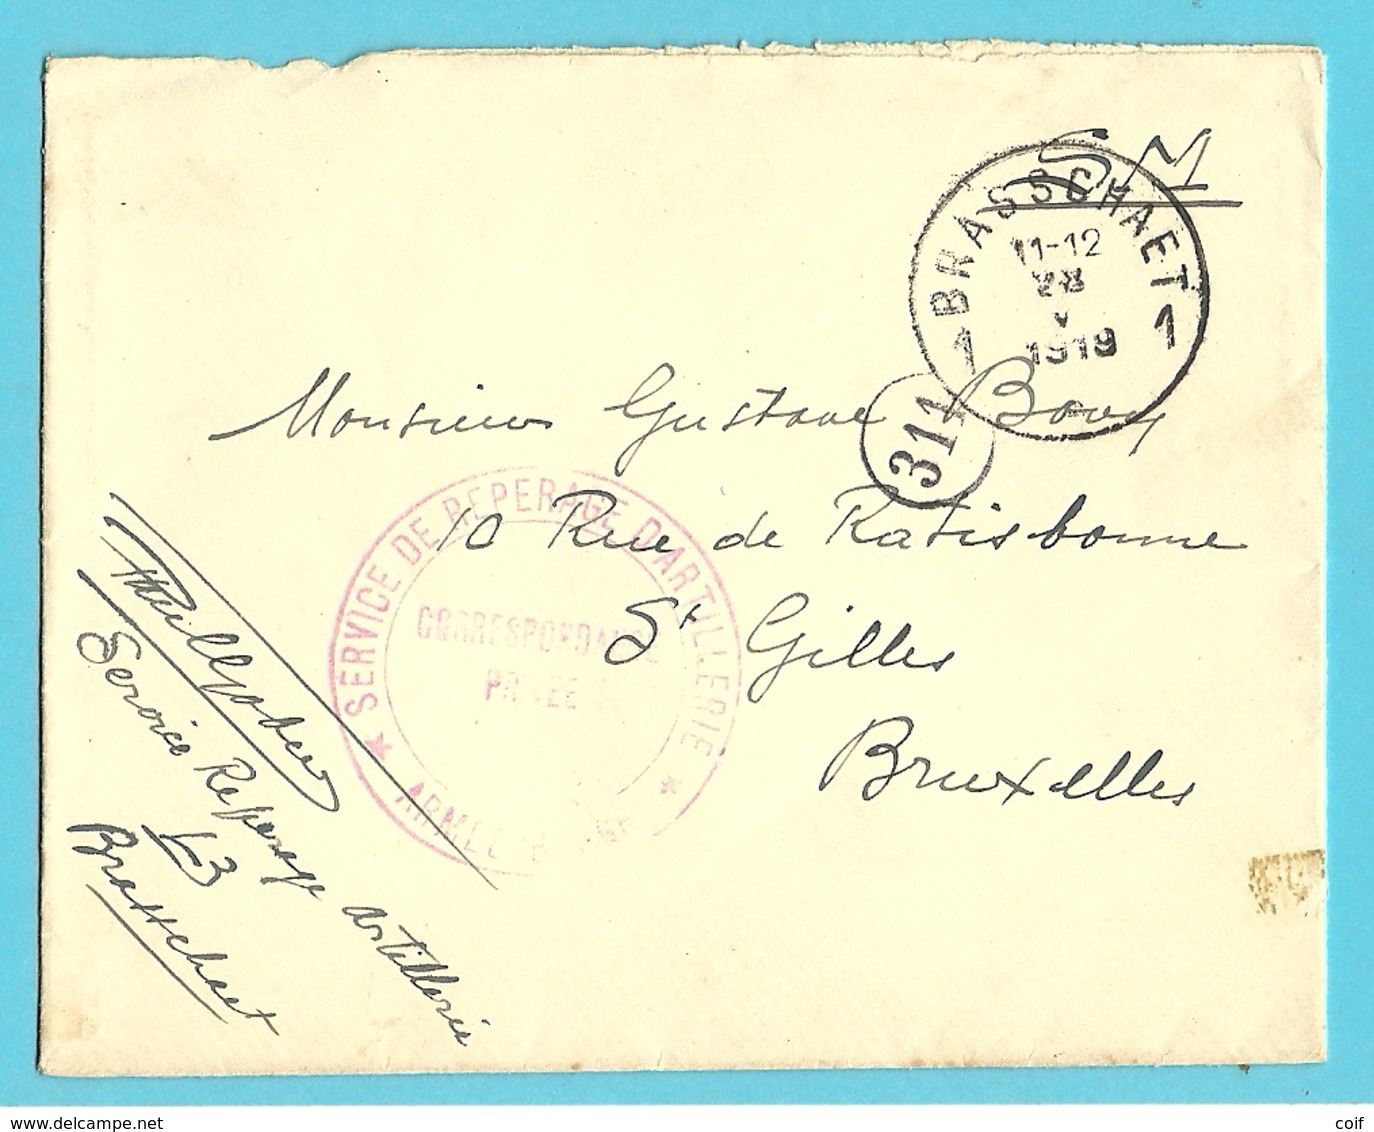 SM
BRASSCHAET
11-12
V
1919
1 1
311
Monsieur Gustave Bovy
10 Rue de Ratisbonne
St Gilles
Bruxelles
★ SERVICE DE REPERAGE D'ARTILLERIE ★
CORRESPONDANCE
PRIVÉE
ARMEE
Service Repérage artillerie
L3
Brasschaet
www.delcampe.net
coif